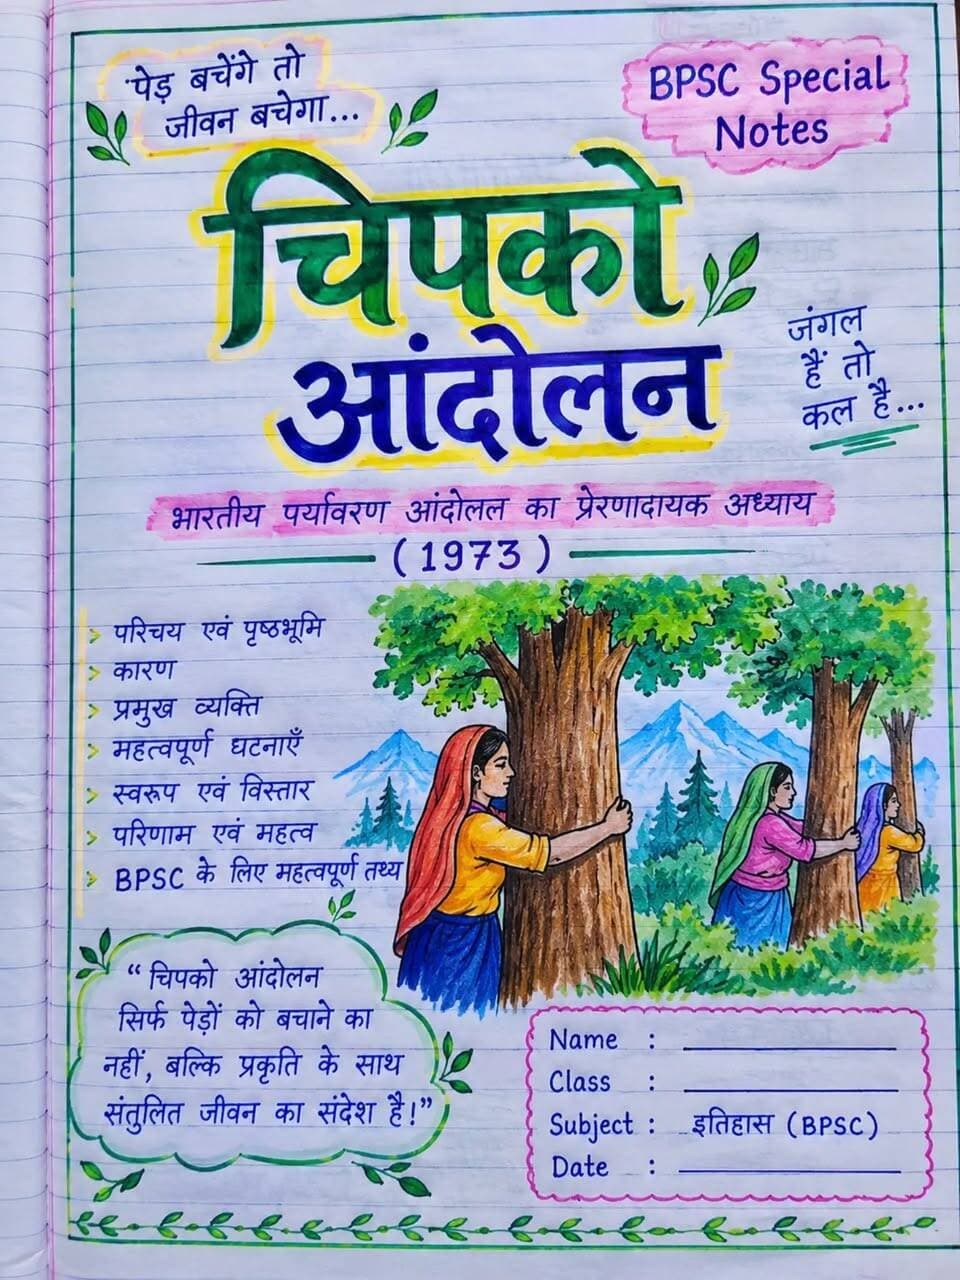 पेड़ बचेंगे तो
जीवन बचेगा...
BPSC Special
Notes
चिपको
आंदोलन
जंगल
हैं तो
कल है...
भारतीय पर्यावरण आंदोलल का प्रेरणादायक अध्याय
(1973)
> परिचय एवं पृष्ठभूमि
> कारण
> प्रमुख व्यक्ति
> महत्वपूर्ण घटनाएँ
> स्वरूप एवं विस्तार
> परिणाम एवं महत्व
> BPSC के लिए महत्वपूर्ण तथ्य
“चिपको आंदोलन
सिर्फ पेड़ों को बचाने का
नहीं, बल्कि प्रकृति के साथ
संतुलित जीवन का संदेश है!”
Name :
Class :
Subject : इतिहास (BPSC)
Date :